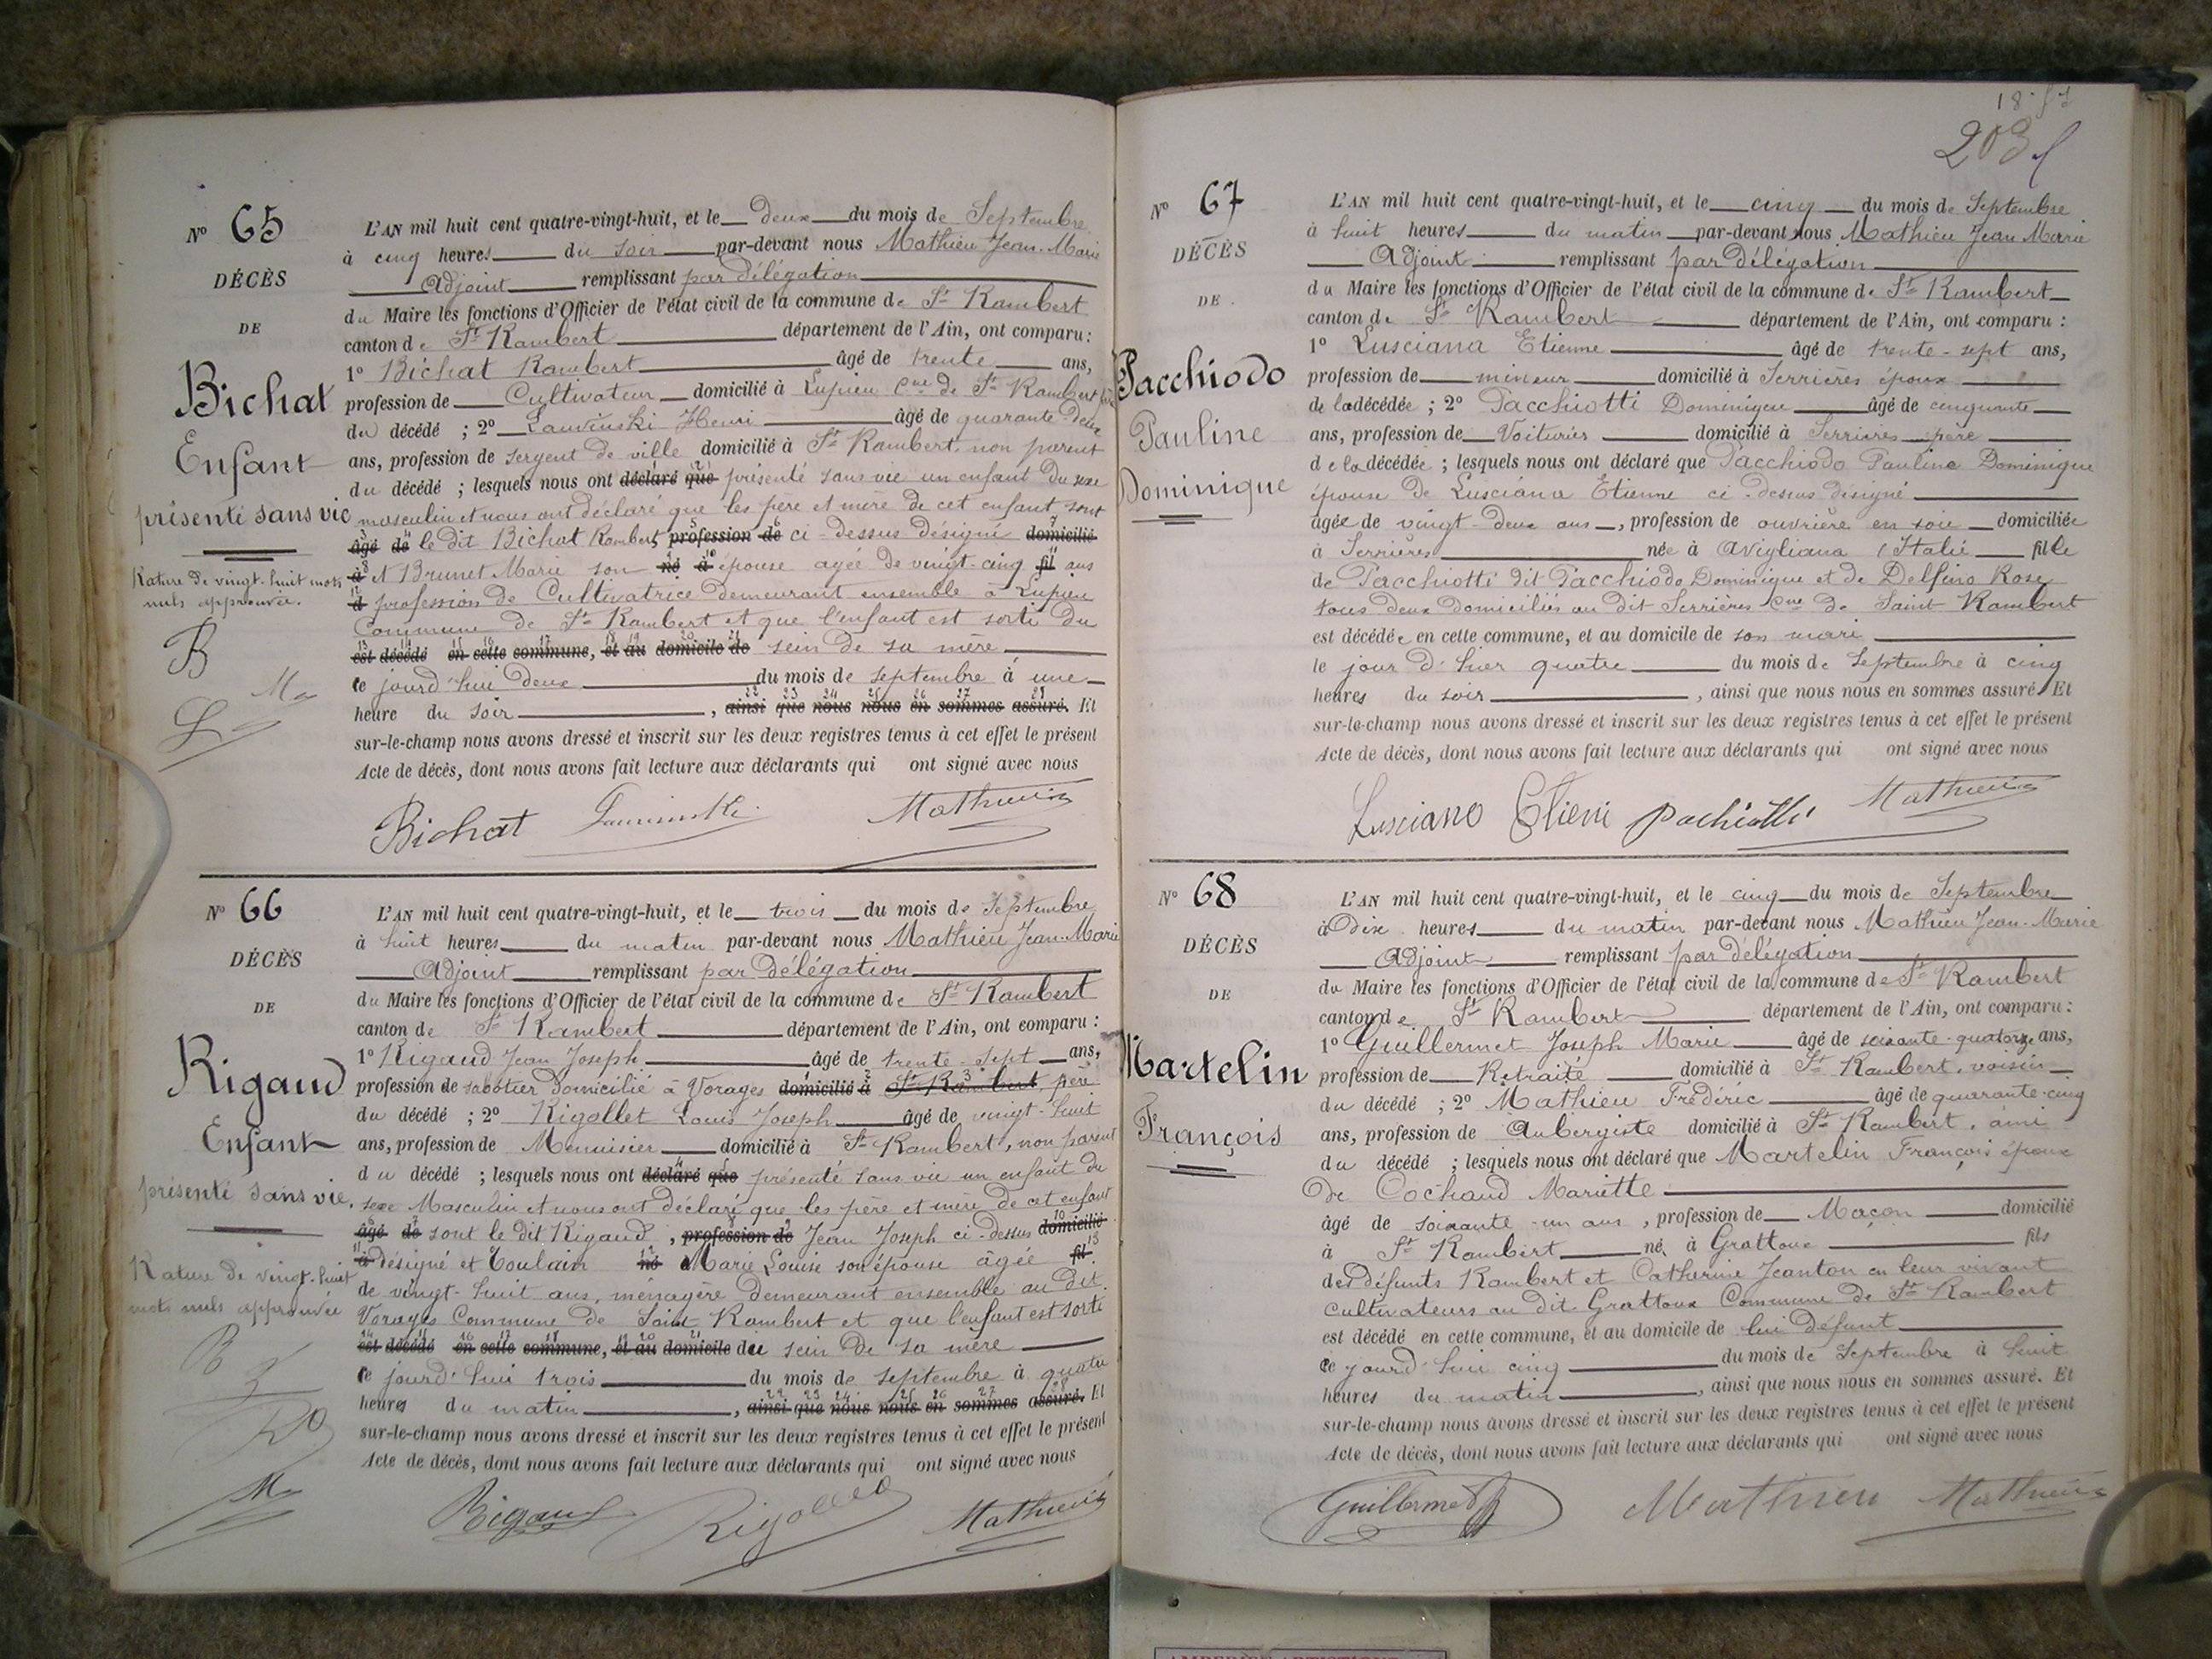 N° 65
DÉCÈS
DE
Bichat
Enfant
présenté sans vie
Rature de vingt-huit mots
nuls approuvée.
B
M
L
L'AN mil huit cent quatre-vingt-huit, et le deux du mois de Septembre
à cinq heures du soir par-devant nous Mathieu Jean-Marie
Adjoint remplissant par délégation
du Maire les fonctions d'Officier de l'état civil de la commune de St Rambert
canton de St Rambert département de l'Ain, ont comparu :
1° Bichat Rambert âgé de trente ans,
profession de Cultivateur domicilié à Lupieu Cne de St Rambert
du décédé ; 2° Lawinski Henri âgé de quarante deux
ans, profession de sergent de ville domicilié à St Rambert, non parent
du décédé ; lesquels nous ont déclaré que présenté sans vie un enfant du sexe
masculin et nous ont déclaré que les père et mère de cet enfant sont
âgé de le dit Bichat Rambert, profession de ci-dessus désigné domicilié
à et Brunet Marie son né à épouse agée de vingt-cinq fil ans
d profession de Cultivatrice demeurant ensemble à Lupieu
Commune de St Rambert et que l'enfant est sorti du
est décédé en cette commune, et au domicile de sein de sa mère
ce jourd'hui deux du mois de septembre à une
heure du soir, ainsi que nous nous en sommes assuré. Et
sur-le-champ nous avons dressé et inscrit sur les deux registres tenus à cet effet le présent
Acte de décès, dont nous avons fait lecture aux déclarants qui ont signé avec nous
Bichat Lawinski Mathieu
N° 66
DÉCÈS
DE
Rigaud
Enfant
présenté sans vie.
Rature de vingt-huit
mots nuls approuvée
R
M
L'AN mil huit cent quatre-vingt-huit, et le trois du mois de Septembre
à huit heures du matin par-devant nous Mathieu Jean-Marie
Adjoint remplissant par délégation
du Maire les fonctions d'Officier de l'état civil de la commune de St Rambert
canton de St Rambert département de l'Ain, ont comparu :
1° Rigaud Jean Joseph âgé de trente-sept ans,
profession de sabotier domicilié à Vorages domicilié à St Rambert, père
du décédé ; 2° Rigollet Louis Joseph âgé de vingt-huit
ans, profession de Menuisier domicilié à St Rambert, non parent
du décédé ; lesquels nous ont déclaré que présenté sans vie un enfant du
sexe Masculin et nous ont déclaré que les père et mère de cet enfant
âgé de sont le dit Rigaud, profession de Jean Joseph ci-dessus domicilié
à désigné et Toulain né Marie Louise son épouse âgée fil
de vingt-huit ans, ménagère demeurant ensemble au dit
Vorages Commune de Saint Rambert et que l'enfant est sorti
est décédé en cette commune, et au domicile du sein de sa mère
ce jourd'hui trois du mois de septembre à quatre
heures du matin, ainsi que nous nous en sommes assuré. Et
sur-le-champ nous avons dressé et inscrit sur les deux registres tenus à cet effet le présent
Acte de décès, dont nous avons fait lecture aux déclarants qui ont signé avec nous
Rigaud Rigollet Mathieu
203
N° 67
DÉCÈS
DE
Pacchiodo
Pauline
Dominique
L'AN mil huit cent quatre-vingt-huit, et le cinq du mois de Septembre
à huit heures du matin par-devant nous Mathieu Jean Marie
Adjoint remplissant par délégation
du Maire les fonctions d'Officier de l'état civil de la commune de St Rambert
canton de St Rambert département de l'Ain, ont comparu :
1° Lusciana Etienne âgé de trente-sept ans,
profession de mineur domicilié à Serrières époux
de la décédée ; 2° Pacchiotti Dominique âgé de cinquante
ans, profession de Voiturier domicilié à Serrières père
de la décédée ; lesquels nous ont déclaré que Pacchiodo Pauline Dominique
épouse de Lusciana Etienne ci-dessus désigné
âgée de vingt-deux ans, profession de ouvrière en soie domiciliée
à Serrières née à Avigliana (Italie fille
de Pacchiotti dit Pacchiodo Dominique et de Delfino Rose
tous deux domiciliés au dit Serrières Cne de Saint Rambert
est décédée en cette commune, et au domicile de son mari
le jour d'hier quatre du mois de Septembre à cinq
heures du soir, ainsi que nous nous en sommes assuré. Et
sur-le-champ nous avons dressé et inscrit sur les deux registres tenus à cet effet le présent
Acte de décès, dont nous avons fait lecture aux déclarants qui ont signé avec nous
Lusciano Mathieu
N° 68
DÉCÈS
DE
Martelin
François
L'AN mil huit cent quatre-vingt-huit, et le cinq du mois de Septembre
à dix heures du matin par-devant nous Mathieu Jean-Marie
Adjoint remplissant par délégation
du Maire les fonctions d'Officier de l'état civil de la commune de St Rambert
canton de St Rambert département de l'Ain, ont comparu :
1° Guillermet Joseph Marie âgé de soixante-quatorze ans,
profession de Retraité domicilié à St Rambert, voisin
du décédé ; 2° Mathieu Frédéric âgé de quarante-cinq
ans, profession de Aubergiste domicilié à St Rambert, ami
du décédé ; lesquels nous ont déclaré que Martelin François époux
de Cochaud Mariette
âgé de soixante-un ans, profession de Maçon domicilié
à St Rambert né à Grattoux fils
des défunts Rambert et Catherine Jeanton en leur vivant
cultivateurs au dit Grattoux Commune de St Rambert
est décédé en cette commune, et au domicile de lui défunt
ce jourd'hui cinq du mois de Septembre à huit
heures du matin, ainsi que nous nous en sommes assuré. Et
sur-le-champ nous avons dressé et inscrit sur les deux registres tenus à cet effet le présent
Acte de décès, dont nous avons fait lecture aux déclarants qui ont signé avec nous
Guillermet Mathieu Mathieu